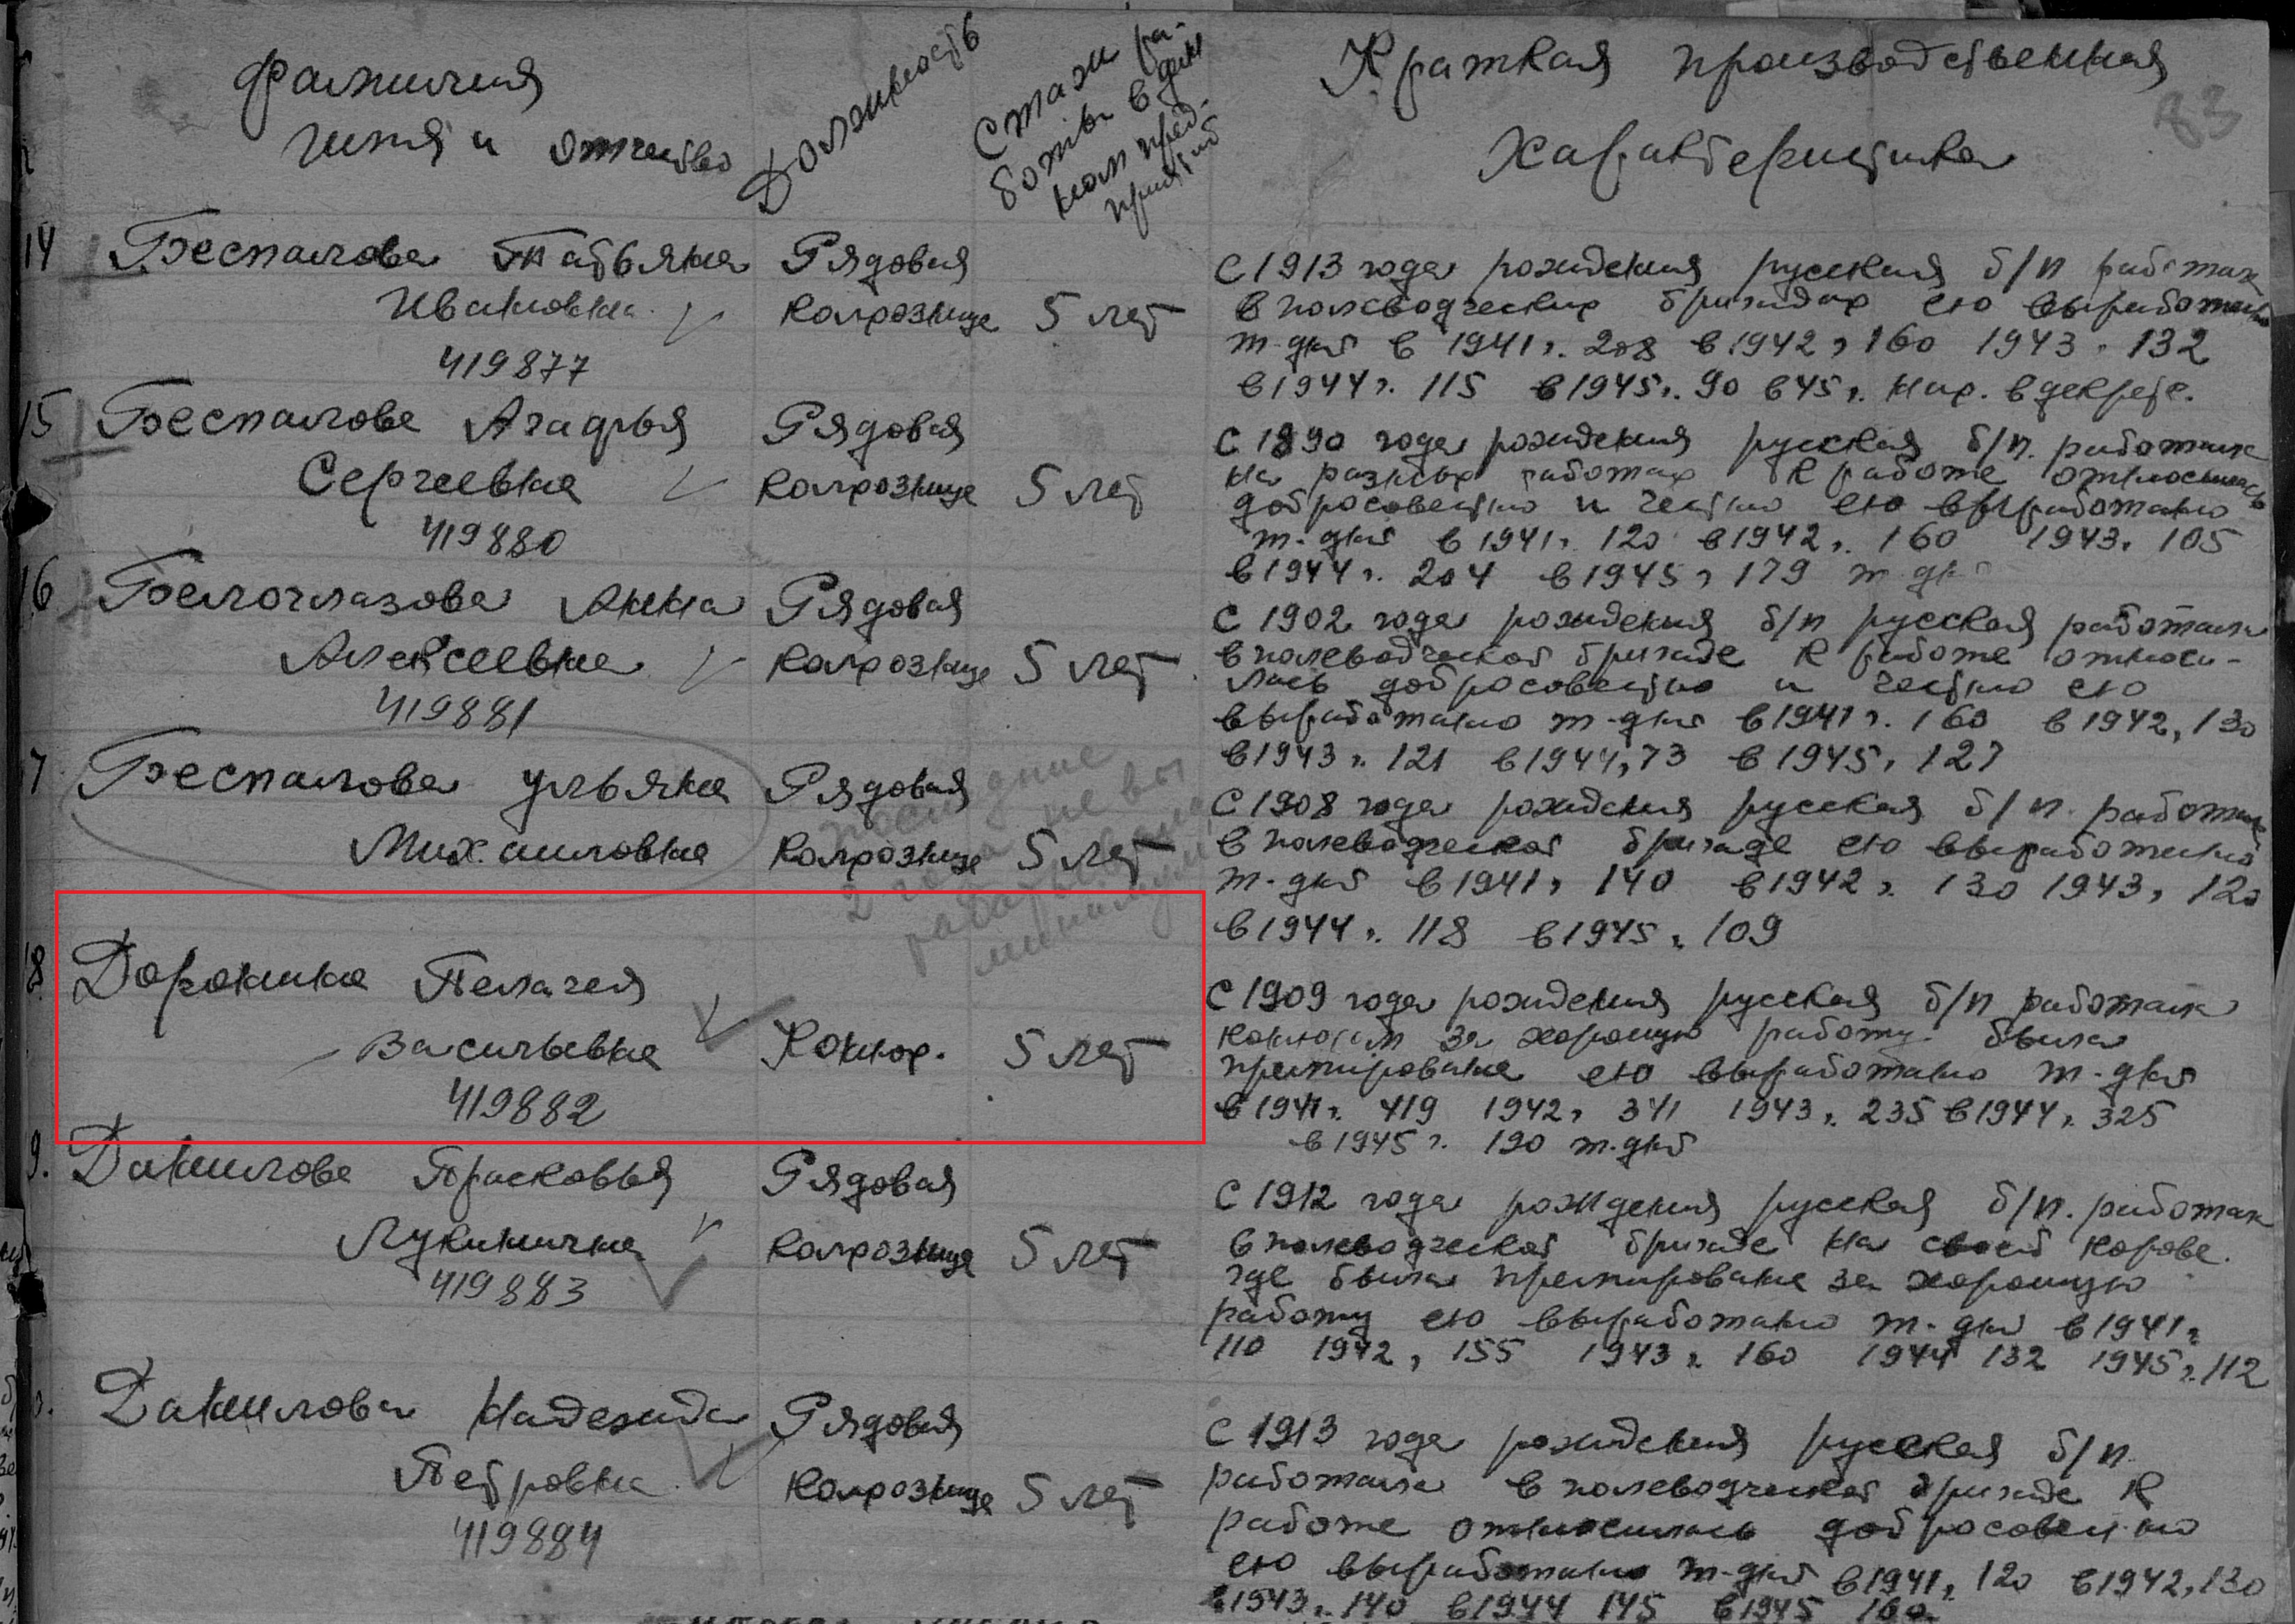 Фамилия
имя и отчество
Должность
Стаж ра-
боты в дан
ном пред-
приятий
Краткая производственная
характеристика
83
14 Беспалова Татьяна Рядовая
Ивановна колхозница 5 лет
419877
С 1913 года рождения русская б/п работала
в полеводческих бригадах ею выработано
т-дней в 1941 г. 208 в 1942 г 160 1943 г 132
в 1944 г. 115 в 1945 г. 90 в 45 г. нах. в декрете.
15 Беспалова Агафья Рядовая
Сергеевна колхозница 5 лет
419880
С 1890 года рождения русская б/п. работала
на разных работах к работе относилась
добросовестно и честно ею выработано
т-дней в 1941 г. 120 в 1942 г. 160 1943 г 105
в 1944 г. 204 в 1945 г 179 т-дн
16 Белоглазова Анна Рядовая
Алексеевна колхозница 5 лет
419881
С 1902 года рождения б/п русская работала
в полеводческой бригаде к работе относи-
лась добросовестно и честно ею
выработано т-дней в 1941 г. 160 в 1942 г 130
в 1943 г. 121 в 1944 г 73 в 1945 г 127
7 Беспалова Ульяна Рядовая
Михаиловна колхозница 5 лет
последние
2 года не вы
рабатывала
минимум
С 1908 года рождения русская б/п. работала
в полеводческой бригаде ею выработанно
т-дней в 1941 г 140 в 1942 г. 130 1943 г 120
в 1944 г. 118 в 1945 г. 109
18 Доронина Пелагея
Васильевна Конюх. 5 лет
419882
С 1909 года рождения русская б/п работала
конюхом за хорошую работу была
премирована ею выработано т-дней
в 1941 г. 419 1942 г 341 1943 г. 235 в 1944 г. 325
в 1945 г. 190 т-дней
9. Данилова Прасковья Рядовая
Лукинична колхозница 5 лет
419883
С 1912 года рождения русская б/п. работала
в полеводческой бригаде на своей корове.
где была премирована за хорошую
работу ею выработано т-дней в 1941 г
110 1942 г 155 1943 г 160 1944 132 1945 г. 112
Данилова Надежда Рядовая
Петровна колхозница 5 лет
419884
С 1913 года рождения русская б/п.
работала в полеводческой бригаде к
работе относилась добросовестно
ею выработано т-дней в 1941 г 120 в 1942 г 130
в 1943 г. 140 в 1944 145 в 1945 160